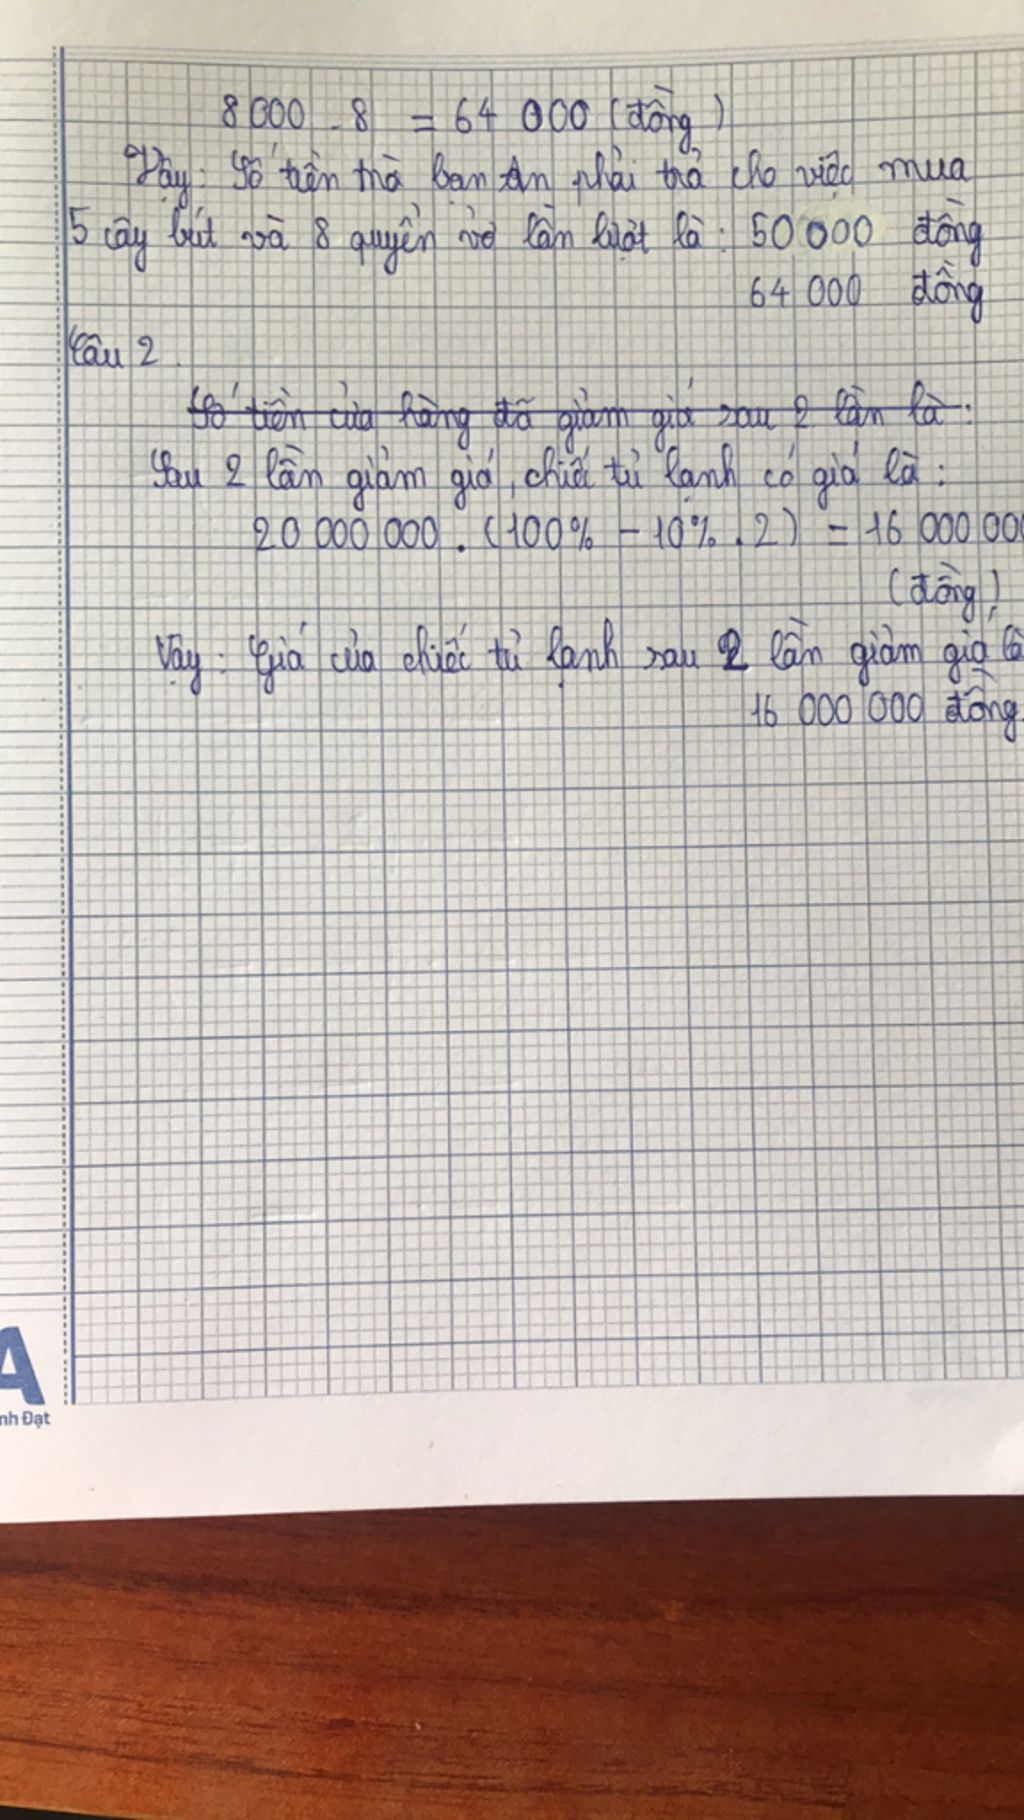 8 000 . 8 = 64 000 (đồng)
Vậy: Số tiền mà bạn An phải trả cho việc mua
5 cây bút và 8 quyển vở lần lượt là: 50 000 đồng
64 000 đồng
Câu 2.
Số tiền cửa hàng đã giảm giá sau 2 lần là:
Sau 2 lần giảm giá, chiếc tủ lạnh có giá là:
20 000 000 . (100% - 10% . 2) = 16 000 000
(đồng)
Vậy: Giá của chiếc tủ lạnh sau 2 lần giảm giá là
16 000 000 đồng.
A
nh Đạt